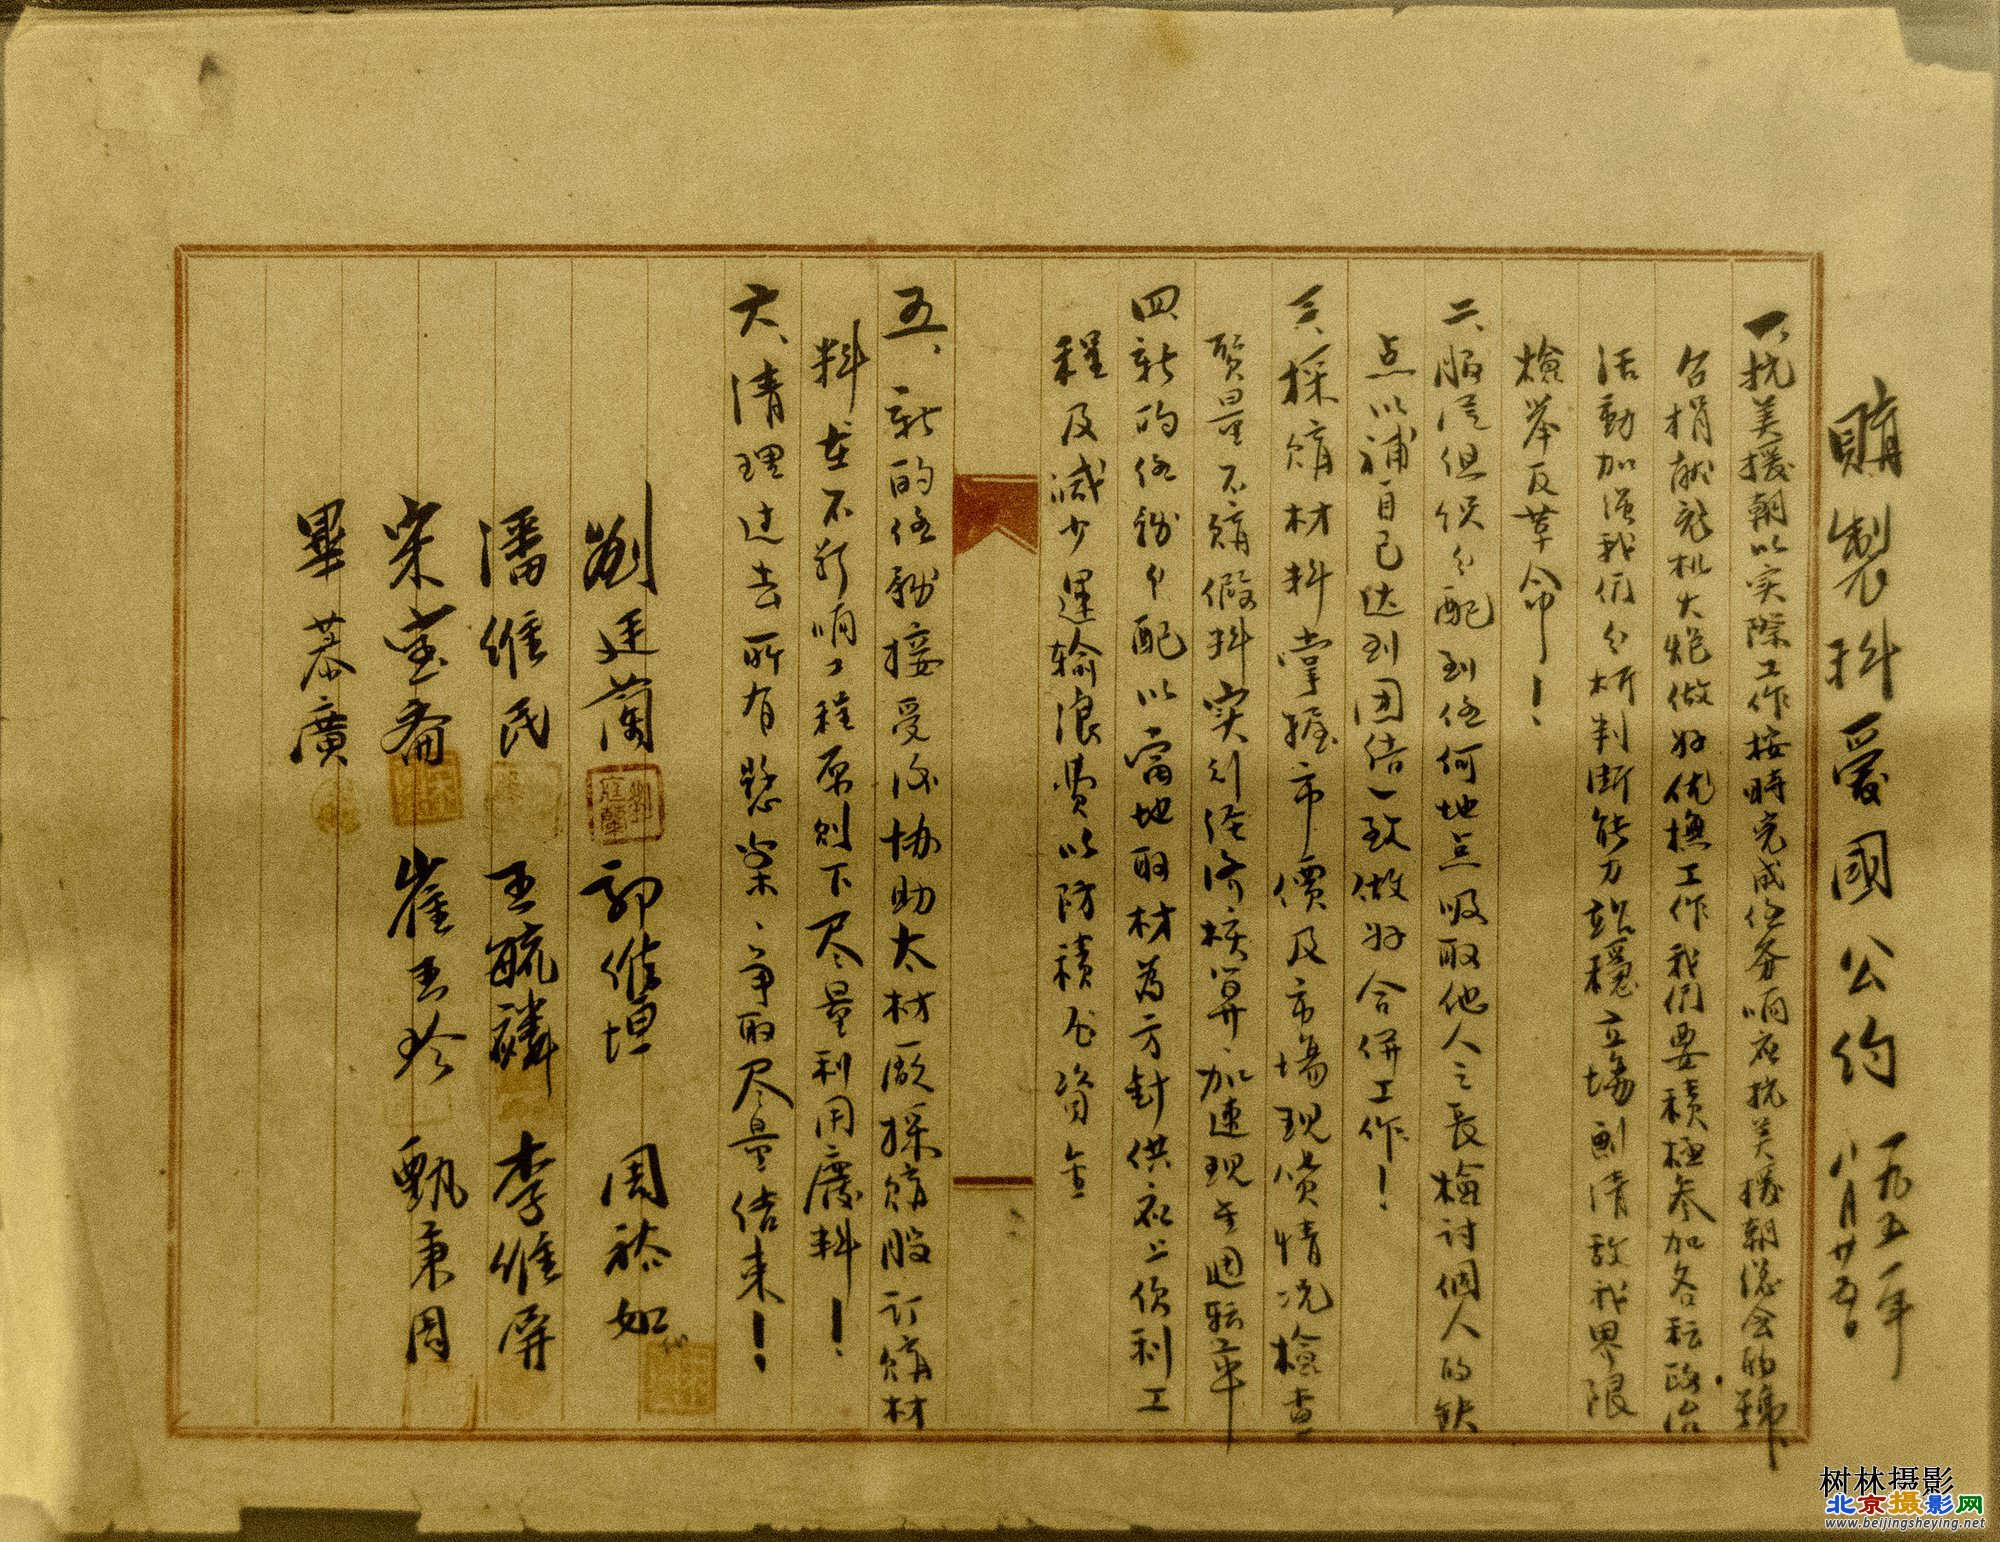 購製科爱國公约 一九五一年
八月廿五日
一、抗美援朝以实际工作按時完成任务响应抗美援朝总会的號
召捐献飛机大炮做好优撫工作我们要積極参加各種政治
活動加强我们分析判断能力站穩立場劃清敌我界限
檢举反革命！
二、服從组织分配到任何地点吸取他人之長檢討個人的缺
点以補自己达到团结一致做好合併工作！
三、採購材料掌握市價及市場現货情况檢查
質量不購假料实行经济核算、加速現金週転率
四、新的任務分配以當地取材為方針供应上便利工
程及减少運输浪費以防積压資金
五、新的任務接受後协助太材廠採購股订購材
料在不影响工程原则下尽量利用废料！
六、清理过去所有懸案、争取尽量结束！
劉廷蘭 郭維垣 周祿如
潘維民 王毓麟 李維屏
宋宝裔 崔玉珍 甄秉周
畢恭廣
树林摄影
北京摄影网
www.beijingsheying.net